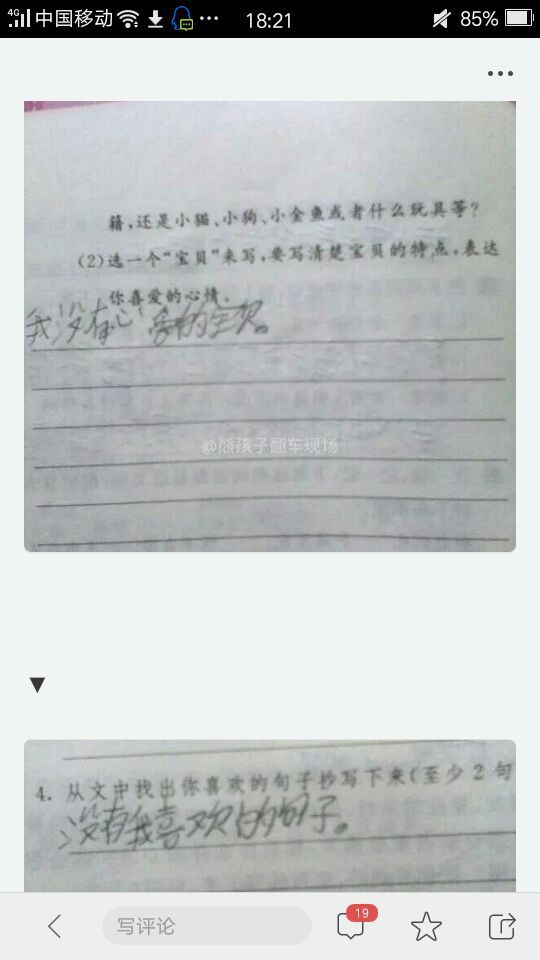 4G 中国移动 18:21 85%
籍,还是小猫、小狗、小金鱼或者什么玩具等?
(2)选一个“宝贝”来写,要写清楚宝贝的特点,表达
你喜爱的心情.
我没有心爱的宝贝。
@熊孩子翻车现场
4. 从文中找出你喜欢的句子抄写下来(至少2句
没有我喜欢的句子。
写评论
19